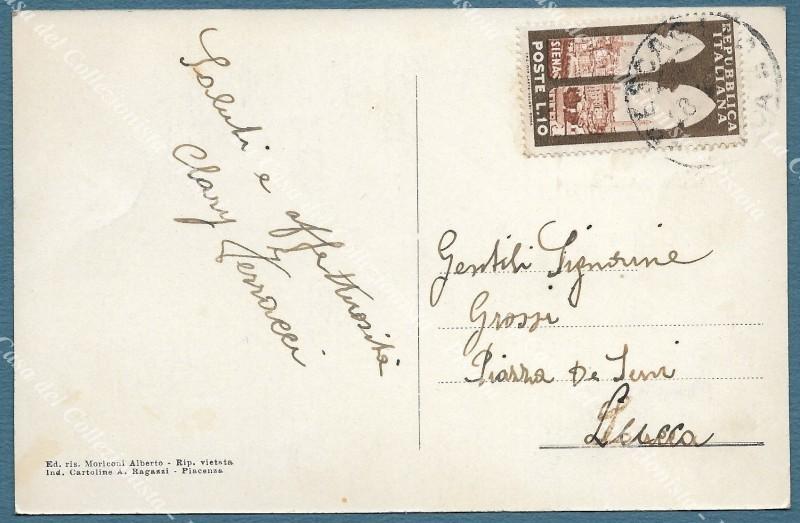 Saluti e affettuosità
Clary Terracci
REPUBBLICA
ITALIANA
SIENA
POSTE L.10
Gentili Signorine
Grossi
Piazza De Servi
Lucca
Ed. ris. Moriconi Alberto - Rip. vietata
Ind. Cartoline A. Ragazzi - Piacenza